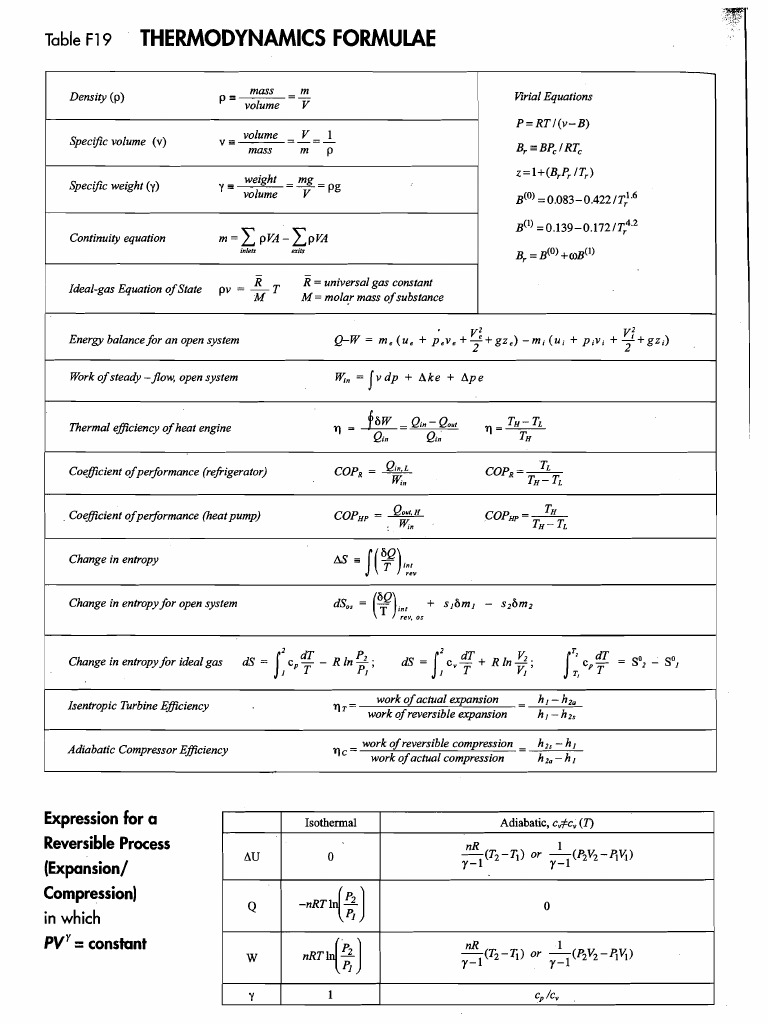 Table F19 THERMODYNAMICS FORMULAE
Density (ρ) ρ ≡ mass/volume = m/V
Specific volume (v) v ≡ volume/mass = V/m = 1/ρ
Specific weight (γ) γ ≡ weight/volume = mg/V = ρg
Continuity equation m = ∑inlets ρVA – ∑exits ρVA
Ideal-gas Equation of State ρv = R̄/M T R̄ = universal gas constant
M = molar mass of substance
Virial Equations
P = RT / (v – B)
Br ≡ BPc / RTc
z = 1 + (BrPr / Tr)
B(0) = 0.083 – 0.422 / Tr^1.6
B(1) = 0.139 – 0.172 / Tr^4.2
Br = B(0) + ωB(1)
Energy balance for an open system Q–W = me (ue + peve + Ve²/2 + gze) – mi (ui + pivi + Vi²/2 + gzi)
Work of steady – flow, open system Win = ∫v dp + Δke + Δpe
Thermal efficiency of heat engine η = ∮δW/Qin = (Qin – Qout)/Qin η = (TH – TL)/TH
Coefficient of performance (refrigerator) COPR = Qin, L/Win COPR = TL/(TH – TL)
Coefficient of performance (heat pump) COPHP = Qout, H/Win COPHP = TH/(TH – TL)
Change in entropy ΔS ≡ ∫(δQ/T)int rev
Change in entropy for open system dSos = (δQ/T)int rev, os + s1δm1 – s2δm2
Change in entropy for ideal gas dS = ∫1^2 cp dT/T – R ln P2/P1; dS = ∫1^2 cv dT/T + R ln V2/V1; ∫T1^T2 cp dT/T = S⁰2 – S⁰1
Isentropic Turbine Efficiency ηT = work of actual expansion/work of reversible expansion = (h1 – h2a)/(h1 – h2s)
Adiabatic Compressor Efficiency ηC = work of reversible compression/work of actual compression = (h2s – h1)/(h2a – h1)
Expression for a
Reversible Process
(Expansion/
Compression)
in which
PV^γ = constant
Isothermal Adiabatic, cv≠cv (T)
ΔU 0 nR/(γ–1) (T2–T1) or 1/(γ–1) (P2V2–P1V1)
Q –nRT ln(P2/P1) 0
W nRT ln(P2/P1) nR/(γ–1) (T2–T1) or 1/(γ–1) (P2V2–P1V1)
γ 1 cp/cv